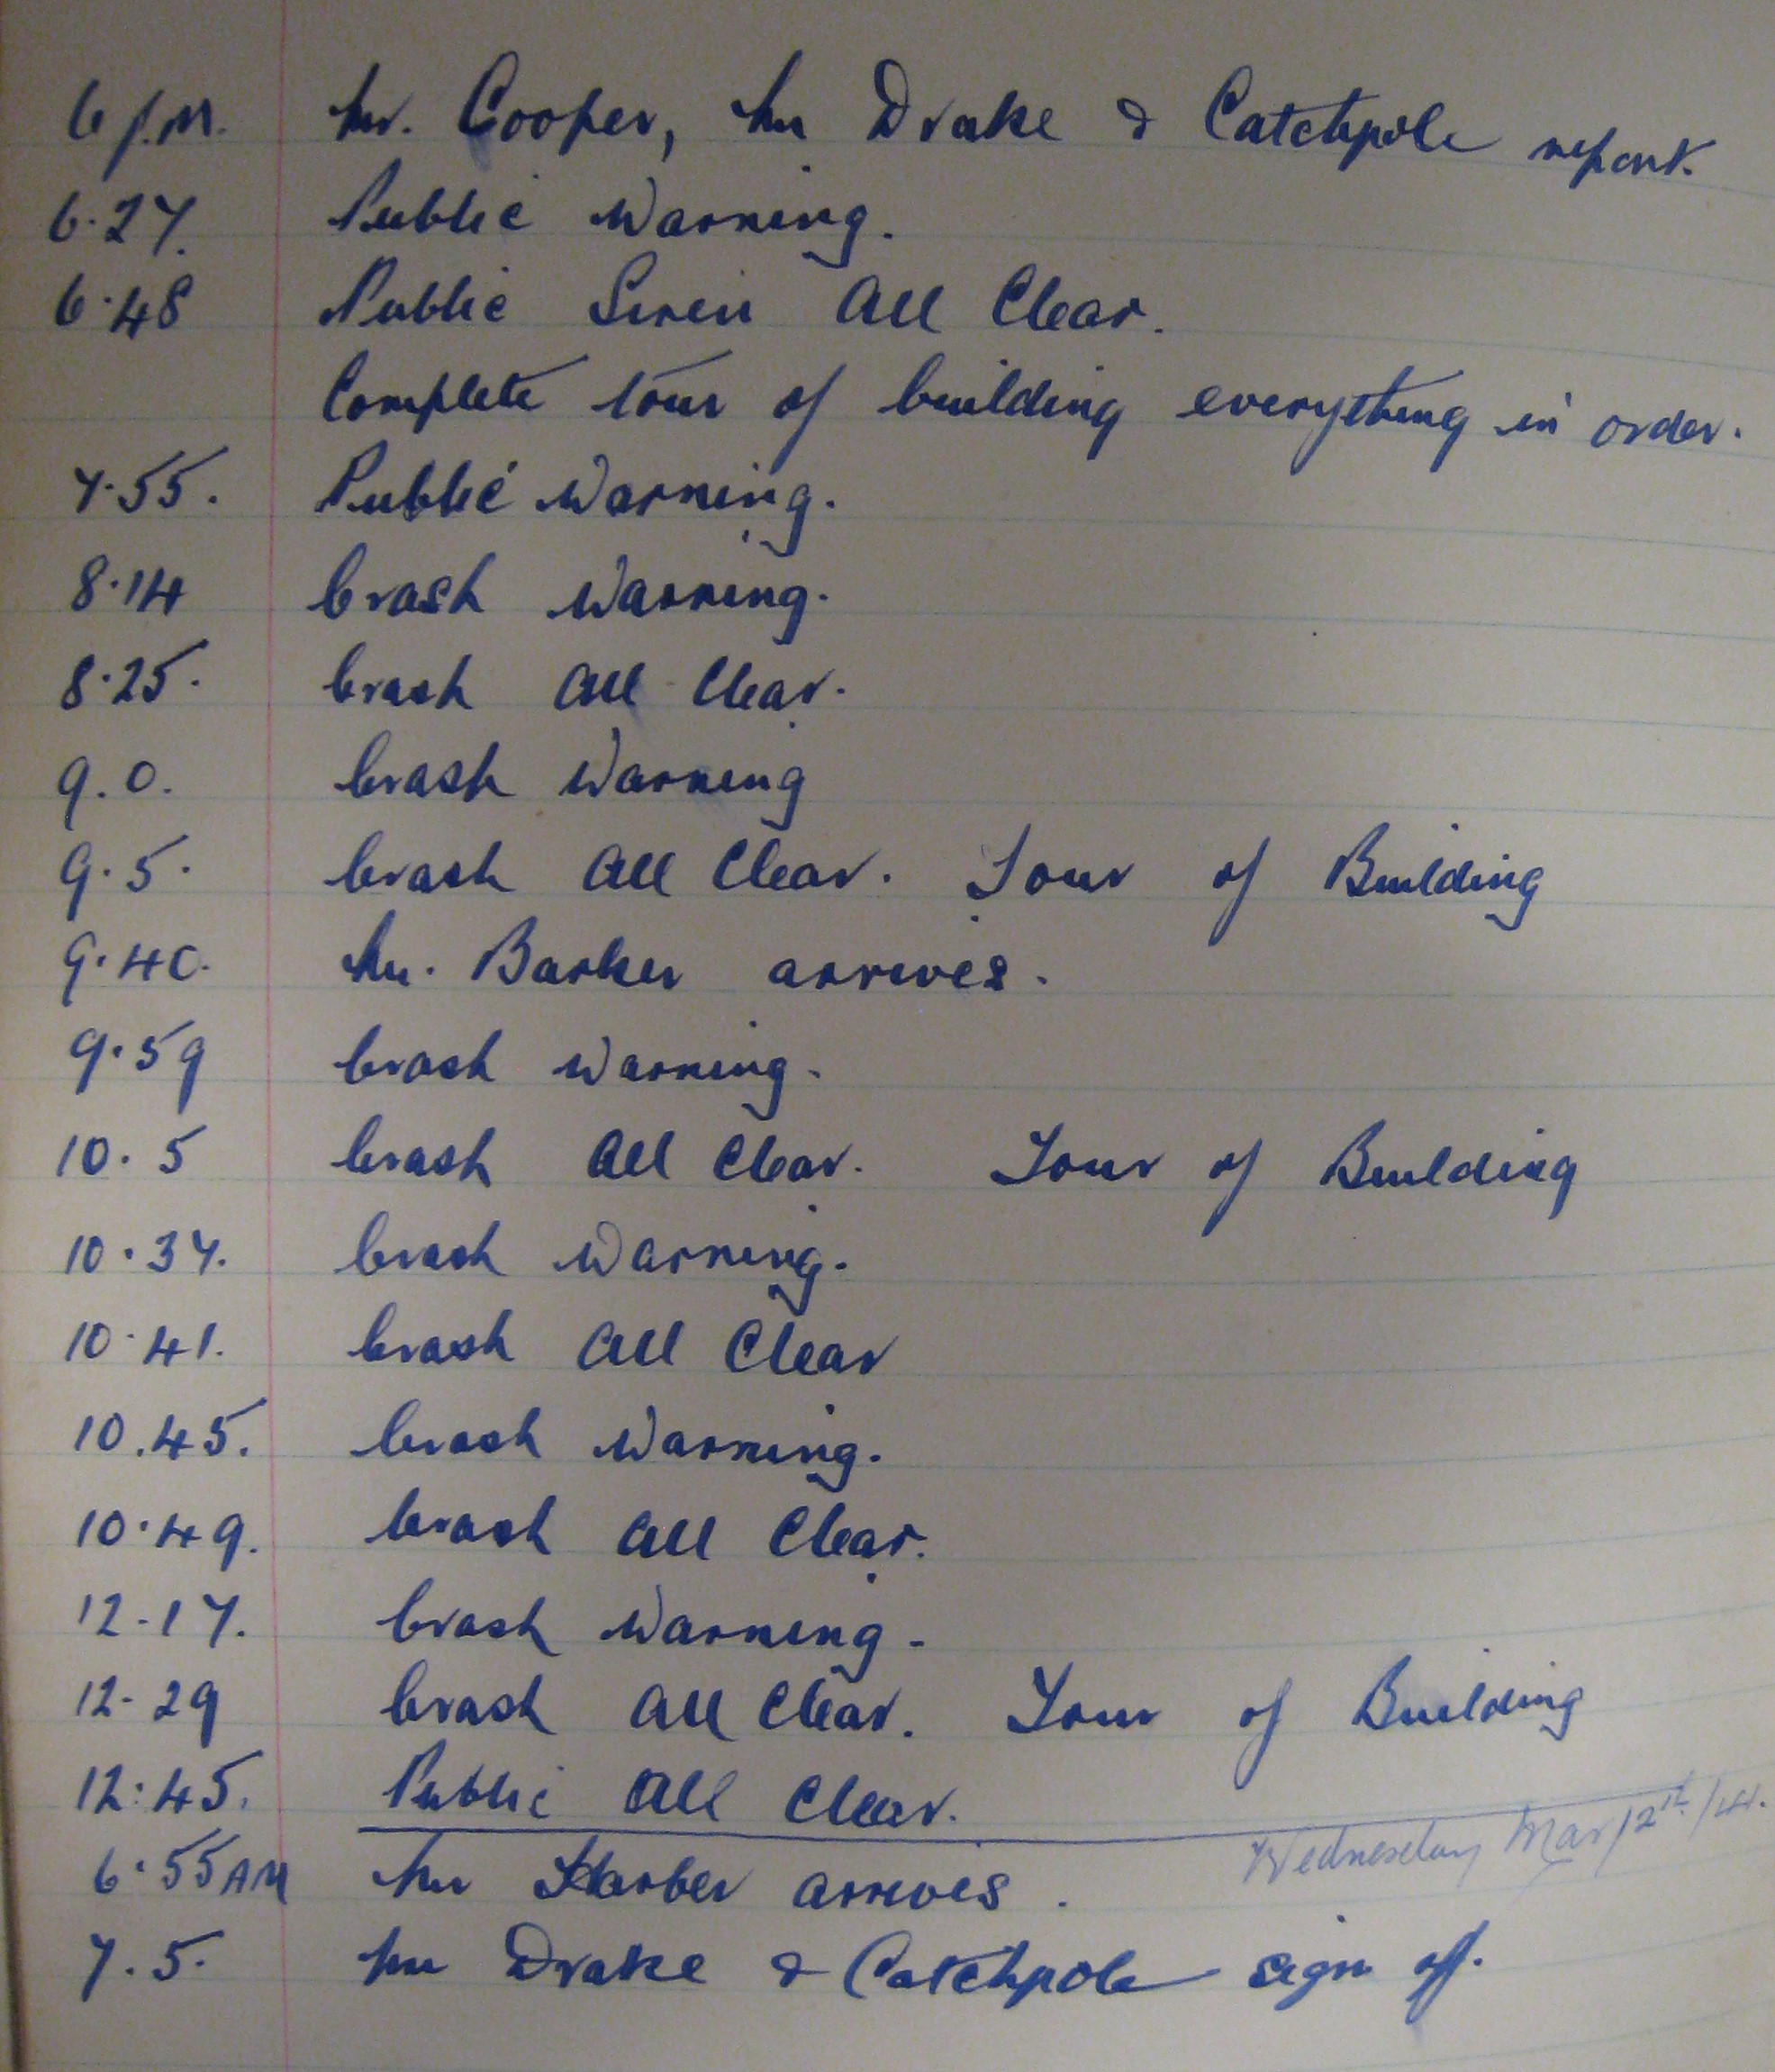 6 p.m. Mr. Cooper, Mr Drake & Catchpole report.
6.27. Public Warning.
6.48 Public Siren All Clear.
Complete tour of building everything in order.
7.55. Public Warning.
8.14 Crash Warning.
8.25. Crash All Clear.
9.0. Crash Warning
9.5. Crash All Clear. Tour of Building
9.40. Mr. Barker arrives.
9.59 Crash Warning.
10.5 Crash All Clear. Tour of Building
10.37. Crash Warning.
10.41. Crash All Clear
10.45. Crash Warning.
10.49. Crash All Clear.
12.17. Crash Warning.
12.29 Crash All Clear. Tour of Building
12:45. Public All Clear.
Wednesday Mar 12th/41.
6.55 AM Mr Harber arrives.
7.5. Mr Drake & Catchpole sign off.